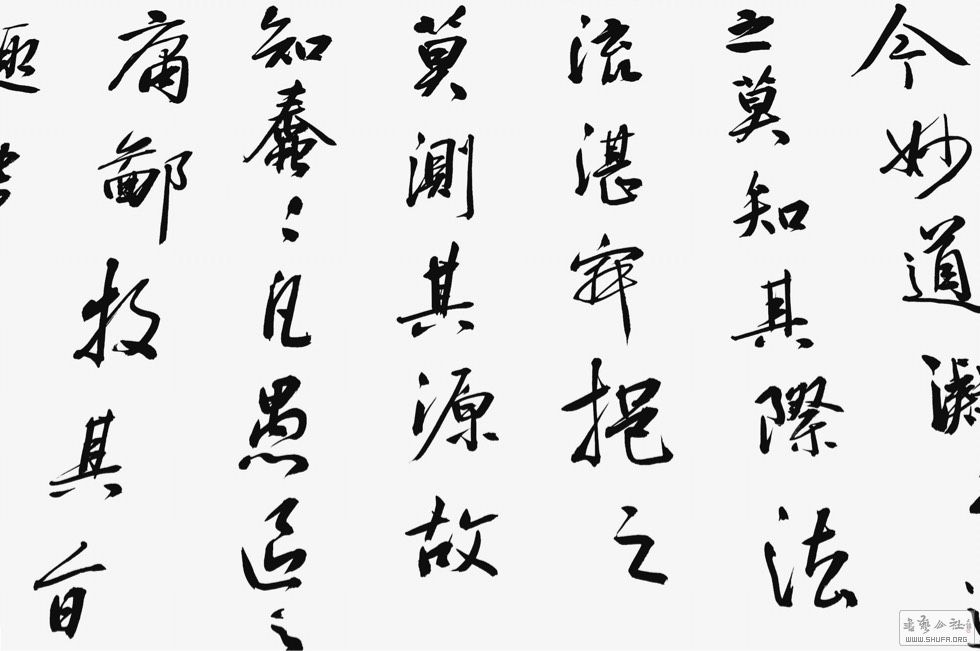 今妙道凝
之莫知其際法
流湛寂挹之
莫測其源故
知蠢〻凡愚區〻
庸鄙投其旨
趣
書藝公社
WWW.SHUFA.ORG